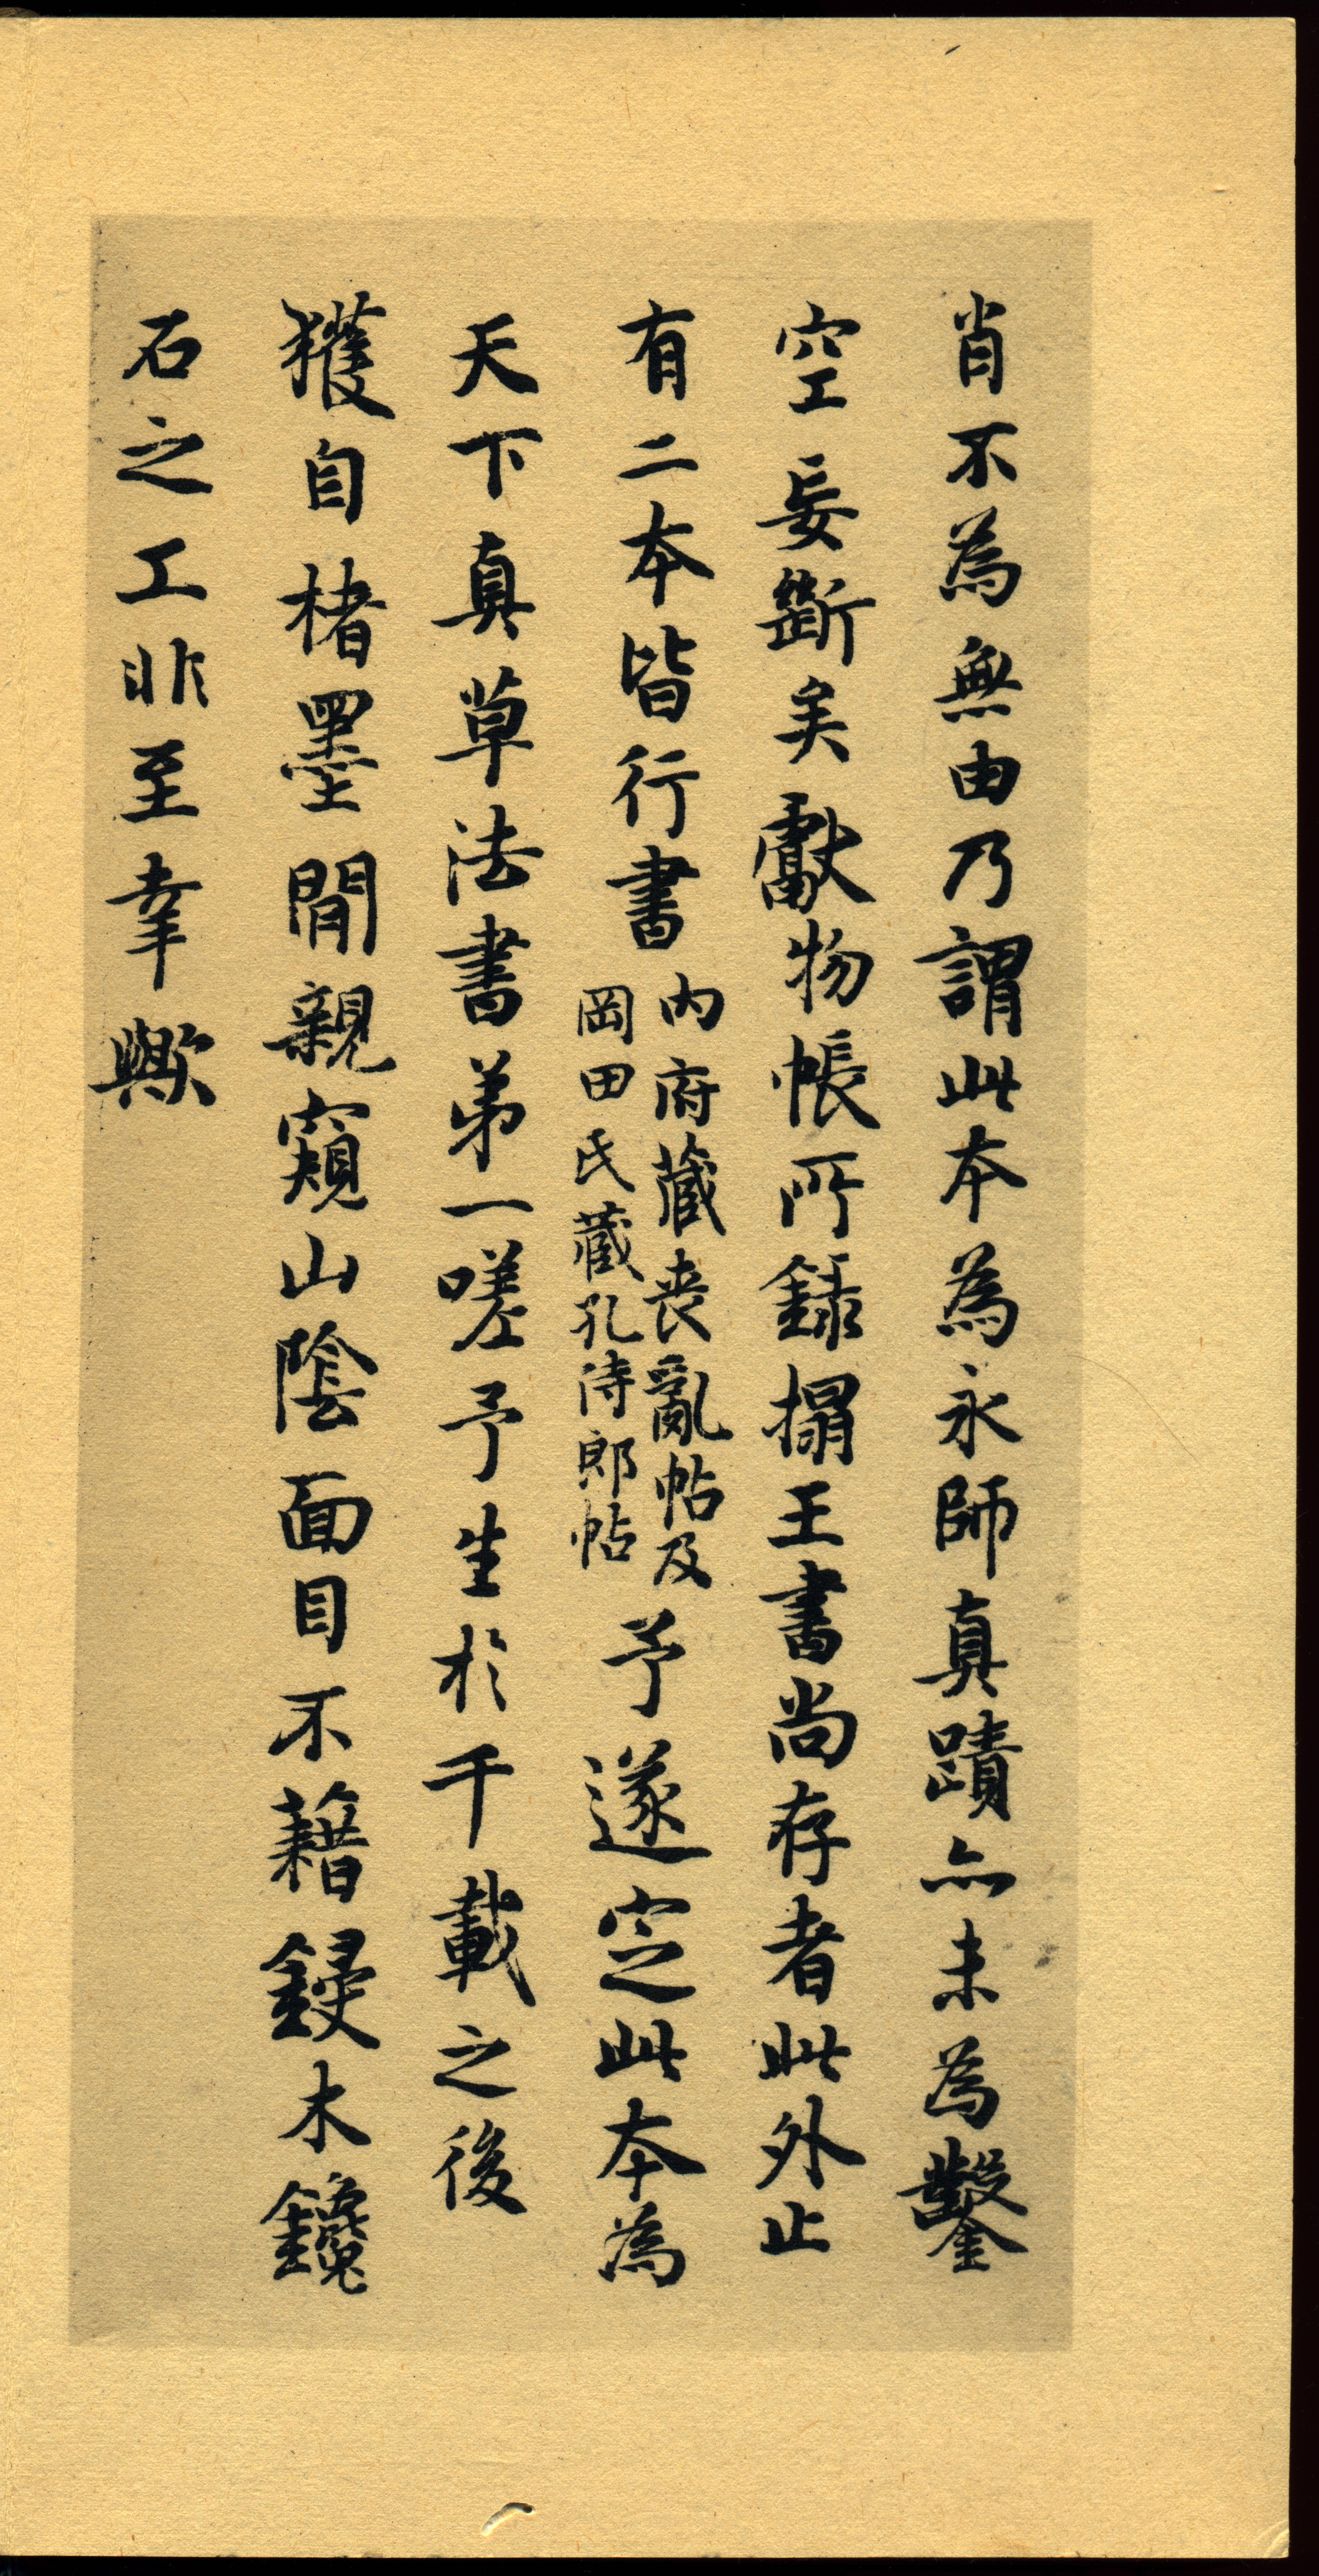 肖不為無由乃謂此本為永師真蹟亦未為鑿
空妄斷矣獻物帳所錄搨王書尚存者此外止
有二本皆行書
內府藏喪亂帖及
岡田氏藏孔侍郎帖
予遂定此本為
天下真草法書弟一嗟予生於千載之後
獲自楮墨間親窺山陰面目不藉鋟木鑱
石之工非至幸歟